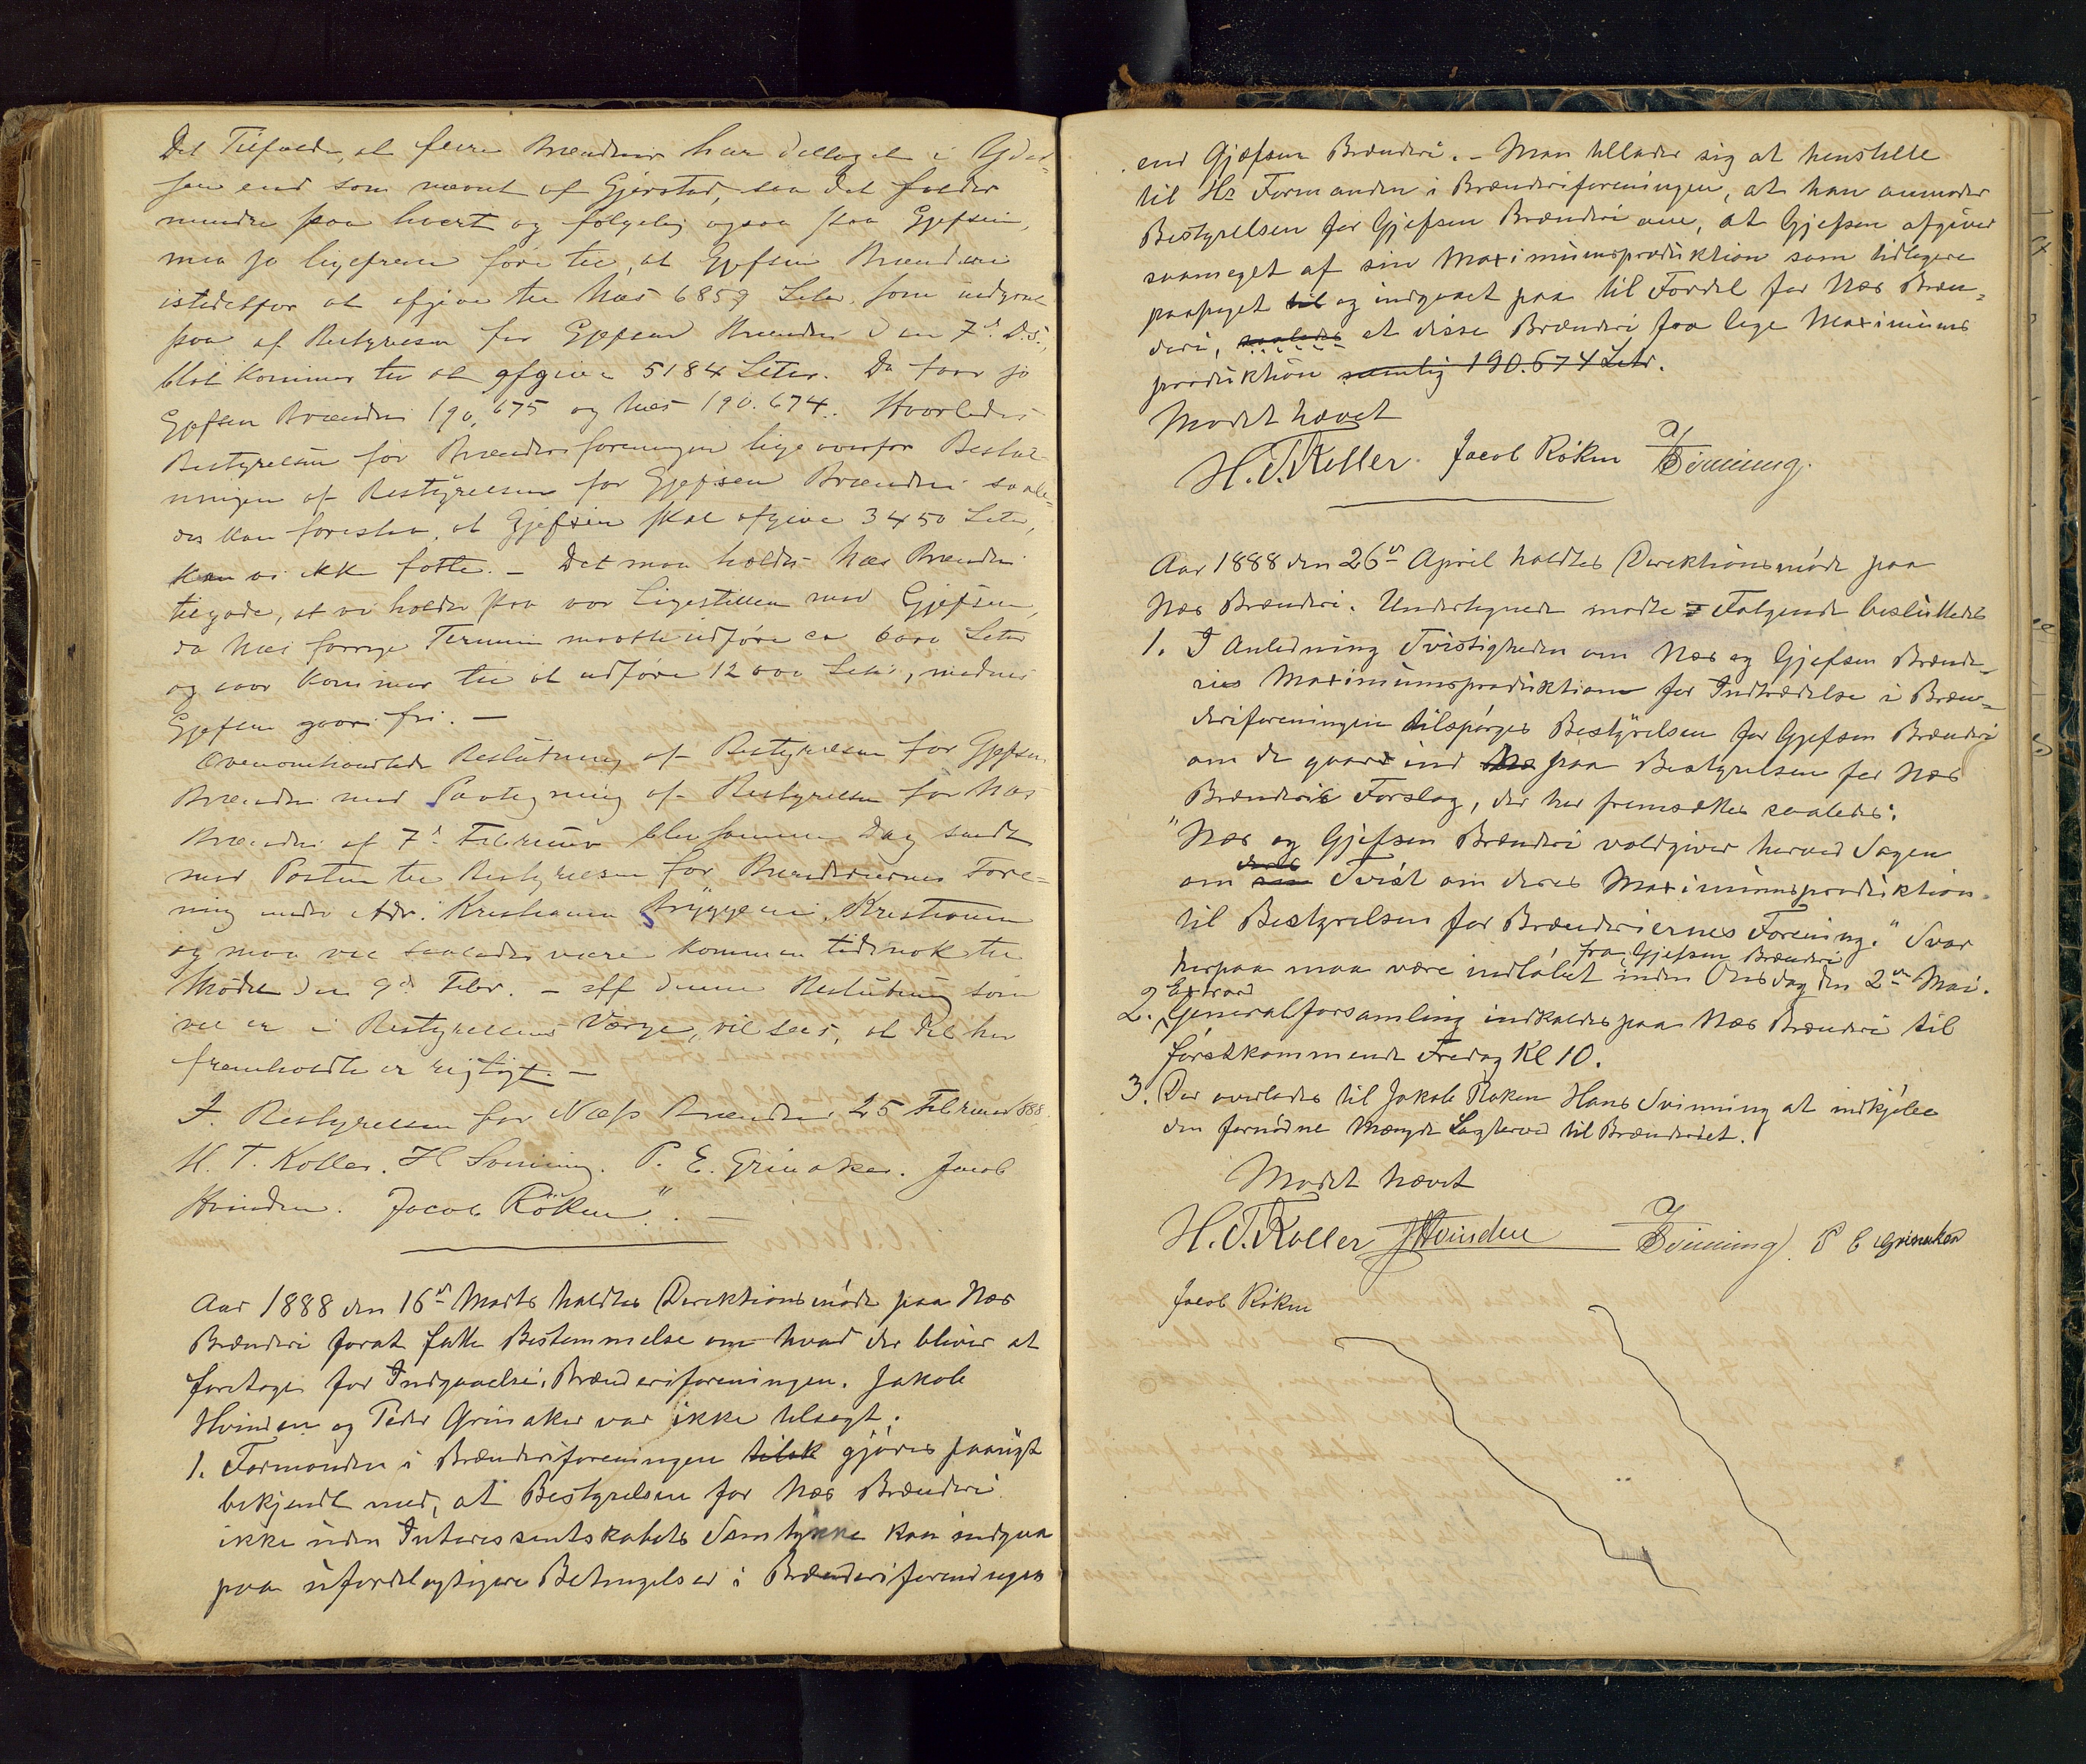 Det Tilfælde, at flere Brænderier har deltaget i Ydel-
sen end som nævnt af Gjerstad, saa det falder
mindre paa hvert og følgelig ogsaa paa Gjefsen,
maa jo ligefrem føre til, at Gjefsen Brænderi
istedetfor at afgive til Næs 6859 Liter som indgaat
paa af Bestyrelsen for Gjefsen Brænderi den 7d D.s.,
blot kommer til at afgive 5184 Liter. Da faar jo
Gjefsen Brænderi 190,675 og Næs 190.674. Hvorledes
Bestyrelsen for Brænderiforeningen ligeoverfor Beslut-
ningen af Bestyrelsen for Gjefsen Brænderi saale-
des kan foreslaa, at Gjefsen skal afgive 3450 Liter,
kan vi ikke fatte. – Det maa holdes Næs Brænderi
tilgode, at vi holder paa vor Ligestillen med Gjefsen,
da Næs forrige Termin maatte udføre ca 6000 Liter
og iaar kommer til at udføre 12000 Liter, medens
Gjefsen gaar fri. –
Ovenomhandlede Beslutning af Bestyrelsen for Gjefsen
Brænderi med Paategning af Bestyrelsen for Næs
Brænderi af 7d Februar blev samme Dag sendt
med Posten til Bestyrelsen for Brænderiernes Fore-
ning under Adr. Kristiania Bryggeri, Kristiania
og maa vel saaledes være kommen tidsnok til
Mødet den 9d Febr. – Aff denne Beslutning som
vel er i Bestyrelsens Værge, vil sees, at det her
fremholdte er rigtigt. –
I Bestyrelsen for Næss Brænderi 25 Februar 1888.
H. T. Koller. H Svinning. P. E. Grinaker. Jacob
Hvinden. Jacob Röken". –
Aar 1888 den 16d Marts holdtes Direktionsmøde paa Næs
Brænderi forat fatte Bestemmelse om hvad der bliver at
foretage for Indgaaelse i Brænderiforeningen. Jakob
Hvinden og Peder Grinaker var ikke tilsagt.
1. Formanden i Brænderiforeningen tilsk gjöres paanyt
bekjendt med, at Bestyrelsen for Næs Brænderi
ikke uden Interessentskabets Samtykke kan indgaa
paa ufordelagtigere Betingelser i Brænderiforeningen
end Gjefsen Brænderi. – Man tillader sig at henstille
til Hr Formanden i Brænderiforeningen, at han anmoder
Bestyrelsen for Gjefsen Brænderi om, at Gjefsen afgiver
saameget af sin Maximumsproduktion som tidligere
paasagt til og indgaaet paa til Fordel for Næs Bræn-
deri, saaledes at disse Brænderi faa lige Maximums
produktion nemlig 190.674 Liter.
Mødet hævet
H. T. Koller. Jacob Röken H Svinning.
Aar 1888 den 26de April holdtes Direktionsmøde paa
Næs Brænderi. Undertegnede mødte = Følgende besluttedes
1. I Anledning Tvistigheden om Næs og Gjefsen Brænde-
ries Maximumsproduktion for Indtrædelse i Bræn-
deriforeningen tilspörges Bestyrelsen for Gjefsen Brænderi
om de gaar ind Næ paa Bestyrelsen for Næs
Brænderis Forslag, der her fremsættes saaledes:
"Næs og Gjefsen Brænderi voldgiver herved Sagen
deres
om sin Tvist om deres Maximumsproduktion
til Bestyrelsen for Brænderiernes Forening." Svar
fra Gjefsen Brænderi
herpaa maa være indløbet inden Onsdag den 2den Mai.
Extraord
2. Generalforsamling indkaldes paa Næs Brænderi til
førstkommende Fredag Kl 10.
3. Der overlades til Jakob Röken Hans Svinning at indkjöbe
den fornödne Mængde Lagterved til Brænderiet.
Mødet hævet
H. T. Koller J Hvinden H Svinning P E Grinaker
Jacob Röken